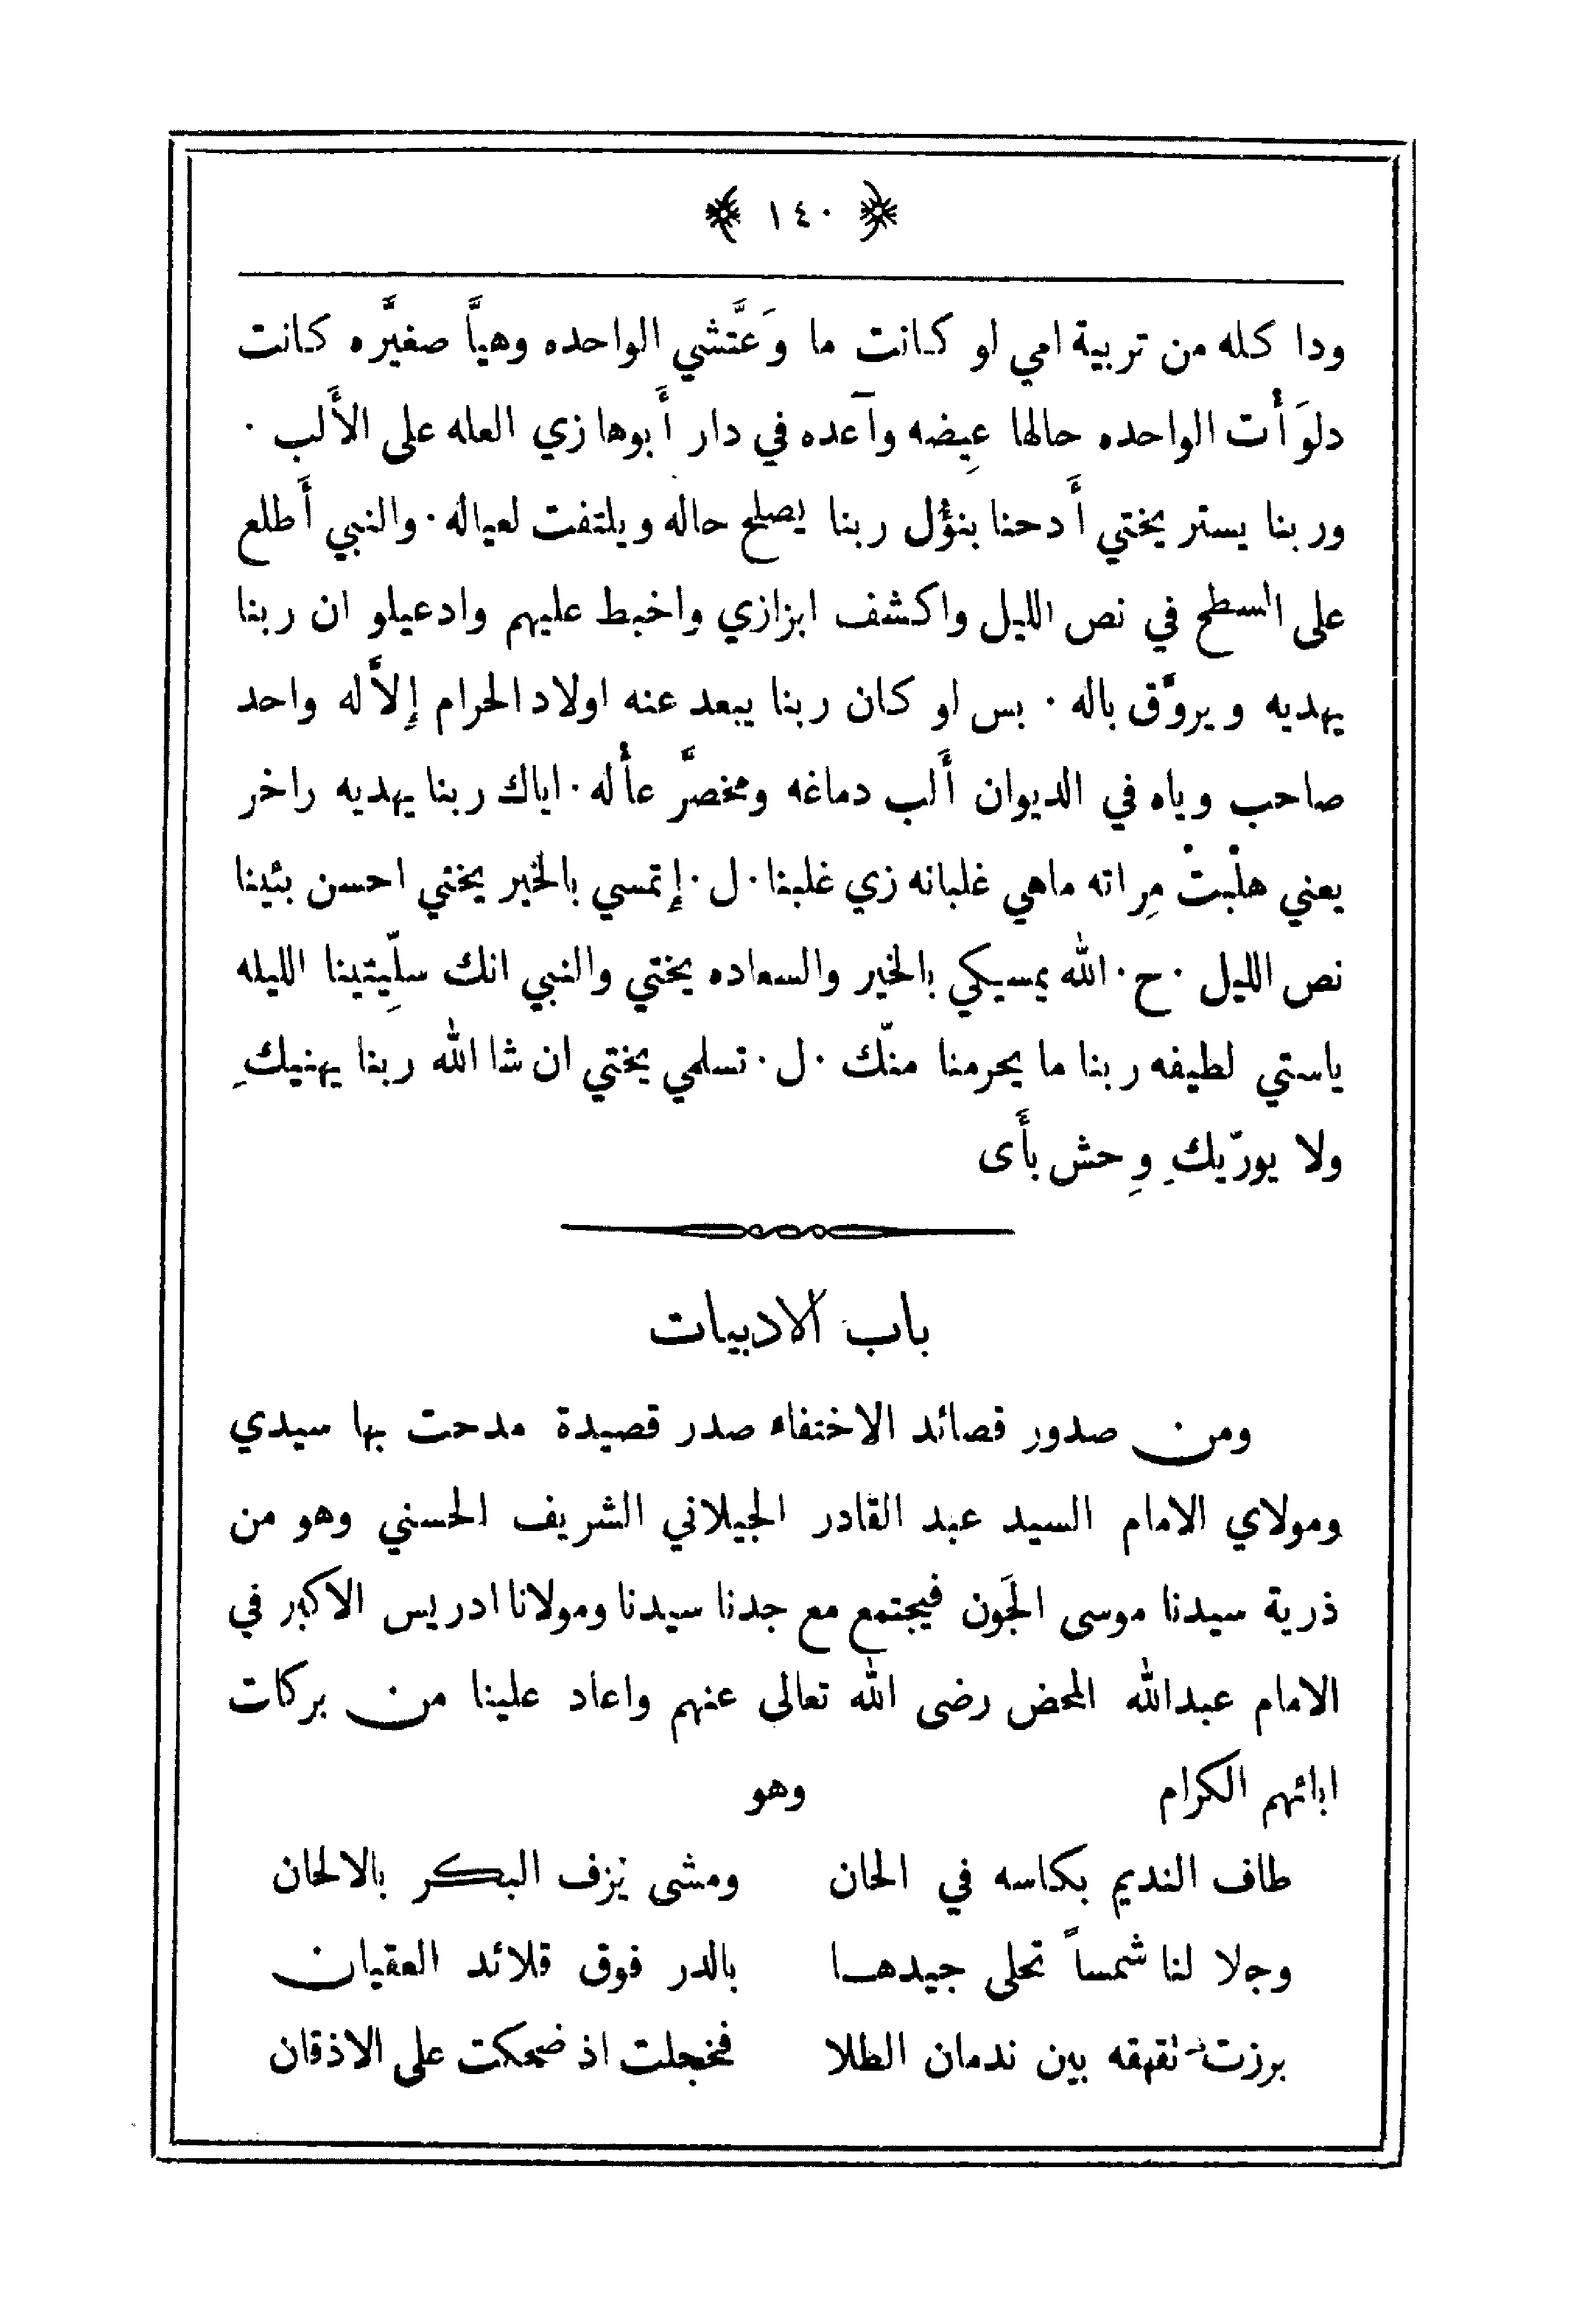 ١٤٠
ودا كله من تربية امي لو كانت ما وَعَّتشي الواحده وهيَّا صغيَّره كانت
دلوَأْت الواحده حالها عِيضه وآعده في دار أَبوها زي العله على الأَلب ·
وربنا يستر يختي أَدحنا بنؤْل ربنا يصلح حاله ويلتفت لعياله · والنبي أَطلع
على السطح في نص الليل واكشف ابزازي واخبط عليهم وادعيلو ان ربنا
يهديه ويروَّق باله · بس لو كان ربنا يبعد عنه اولاد الحرام إِلاَّ له واحد
صاحب وياه في الديوان أَلب دماغه ومخصرَّ عأْله · اياك ربنا يهديه راخر
يعني هلْبتْ مِراته ماهي غلبانه زي غلبنا · ل · إِتمسي بالخير يختي احسن بئينا
نص الليل · ح · الله يمسيكي بالخير والسعاده يختي والنبي انك سلِّيتينا الليله
ياستي لطيفه ربنا ما يحرمنا منّك · ل · تسلمي يختي ان شا الله ربنا يهنيكِ
ولا يورّيكِ وِحش بأَى
باب الادبيات
ومن صدور قصائد الاختفاء صدر قصيدة مدحت بها سيدي
ومولاي الامام السيد عبد القادر الجيلاني الشريف الحسني وهو من
ذرية سيدنا موسى الجَون فيجتمع مع جدنا سيدنا ومولانا ادريس الاكبر في
الامام عبدالله المحض رضى الله تعالى عنهم واعاد علينا من بركات
ابائهم الكرام وهو
طاف النديم بكاسه في الحان ومشى يَزف البكر بالالحان
وجلا لنا شمساً تحلى جيدها بالدر فوق قلائد العقيان
برزت تقهقه بين ندمان الطلا فخجلت اذ ضحكت على الاذقان